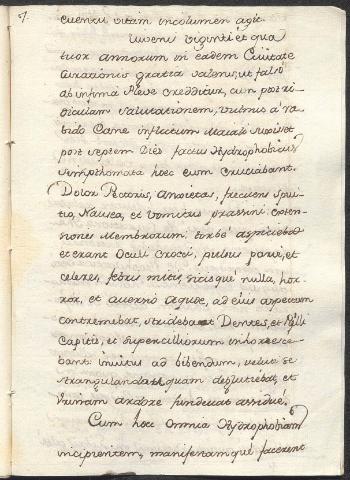 57.
eventu vitam incolumem agit.
Iuvenis viginti et qua
tuor annorum in eadem Civitate
Curationis gratia Salenis, ut falsò
ab infima Pleve creddittur, cum post ri
diculam salutationem, vulnus a ra
bido Cane inflictum
post septem Diês factus Hydrophobicus
Simpthomata hoec eum Cruciabant.
Dolor Pectoris, anxietas, frecuens Spui
tio, Nausea, et Vomitus prassini exten-
siones Membrorum: torbè aspiciebat
et erant Oculi Crocei, pulsus parvi, et
celeres, febris mitis, sitisquè nulla, hor-
ror, et aversiò Aquæ, ad eius aspectum
contremebat, stridebant Dentes, et Pilli
Capitis, et supercilliorum inhorresce-
bant: invitus ad bibendum, velut se
strangulandam quam deglutiebat, et
Urinam ardore fundevat assiduè.
Cum hoec Omnia Hydrophobiam
incipientem, manifestam què facerent